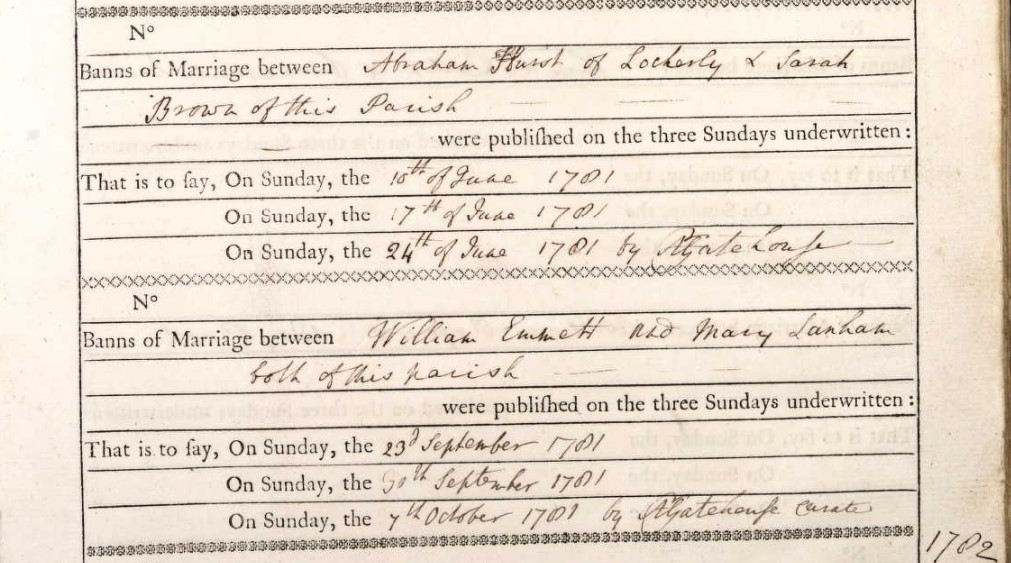 N°
Banns of Marriage between Abraham Hurst of Lockerly & Sarah
Brown of this Parish
were publiſhed on the three Sundays underwritten:
That is to ſay, On Sunday, the 10th of June 1781
On Sunday, the 17th of June 1781
On Sunday, the 24th of June 1781 by RGatehouse
N°
Banns of Marriage between William Emmett and Mary Lanham
both of this parish
were publiſhed on the three Sundays underwritten:
That is to ſay, On Sunday, the 23d September 1781
On Sunday, the 30th September 1781
On Sunday, the 7th October 1781 by RGatehouse Curate
1782